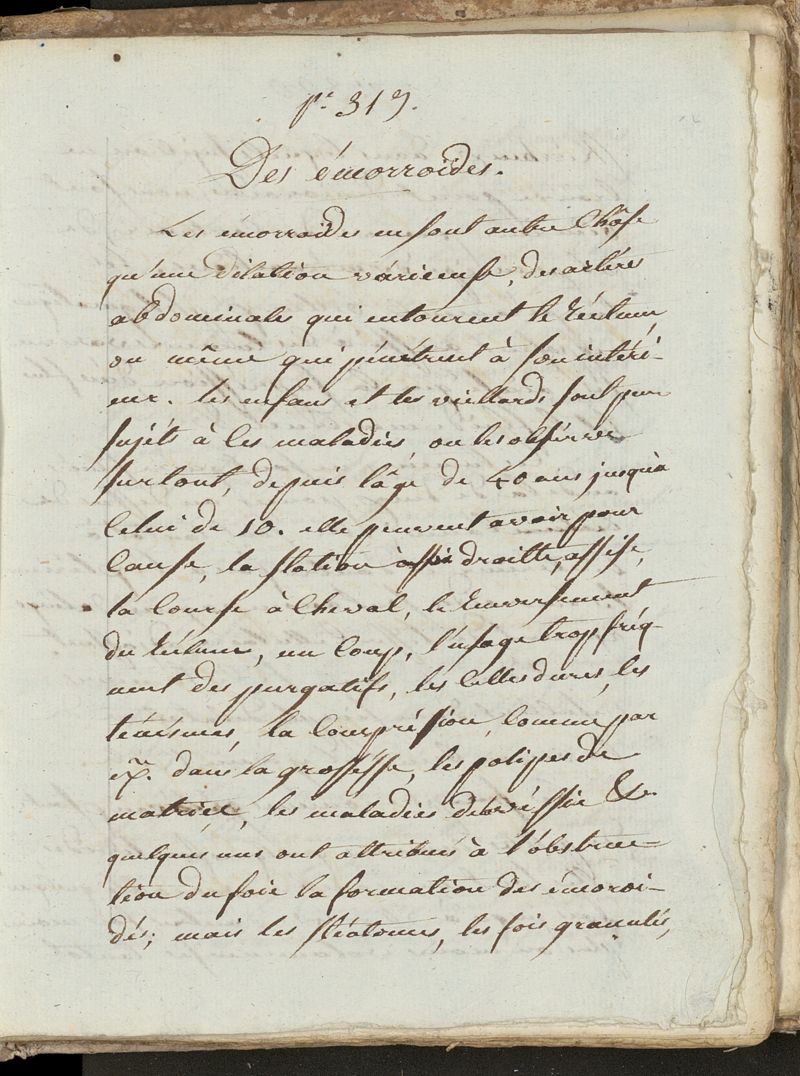 pe 319.
Des émorroïdes.
Les émorroïdes en sont autre chôse
qu'une dilation variceuse, des artères
abdominales qui entourent le réctum,
ou même qui pénétrent à son intéri-
eur. les enfans et les viellards sont peu
sujéts à ces maladies on les obsérve
surtout, depuis l'âge de 40 ans jusqu'a
celui de 10. elle peuvent avoir pour
cause, la station droitte, assise,
la course à cheval, le renversement
du réctum, un coup, l'usage trop fréq-
uent des purgatifs, les selles dures, les
ténésmes, la compréssion, comme par
ex. dans la grosésse, les polipes de
matrice, les maladies de véssie &c
quelques uns ont attribués à l'obstruc-
tion du foie la formation des émoroi-
dés; mais les stéatomes, les fois granulés,